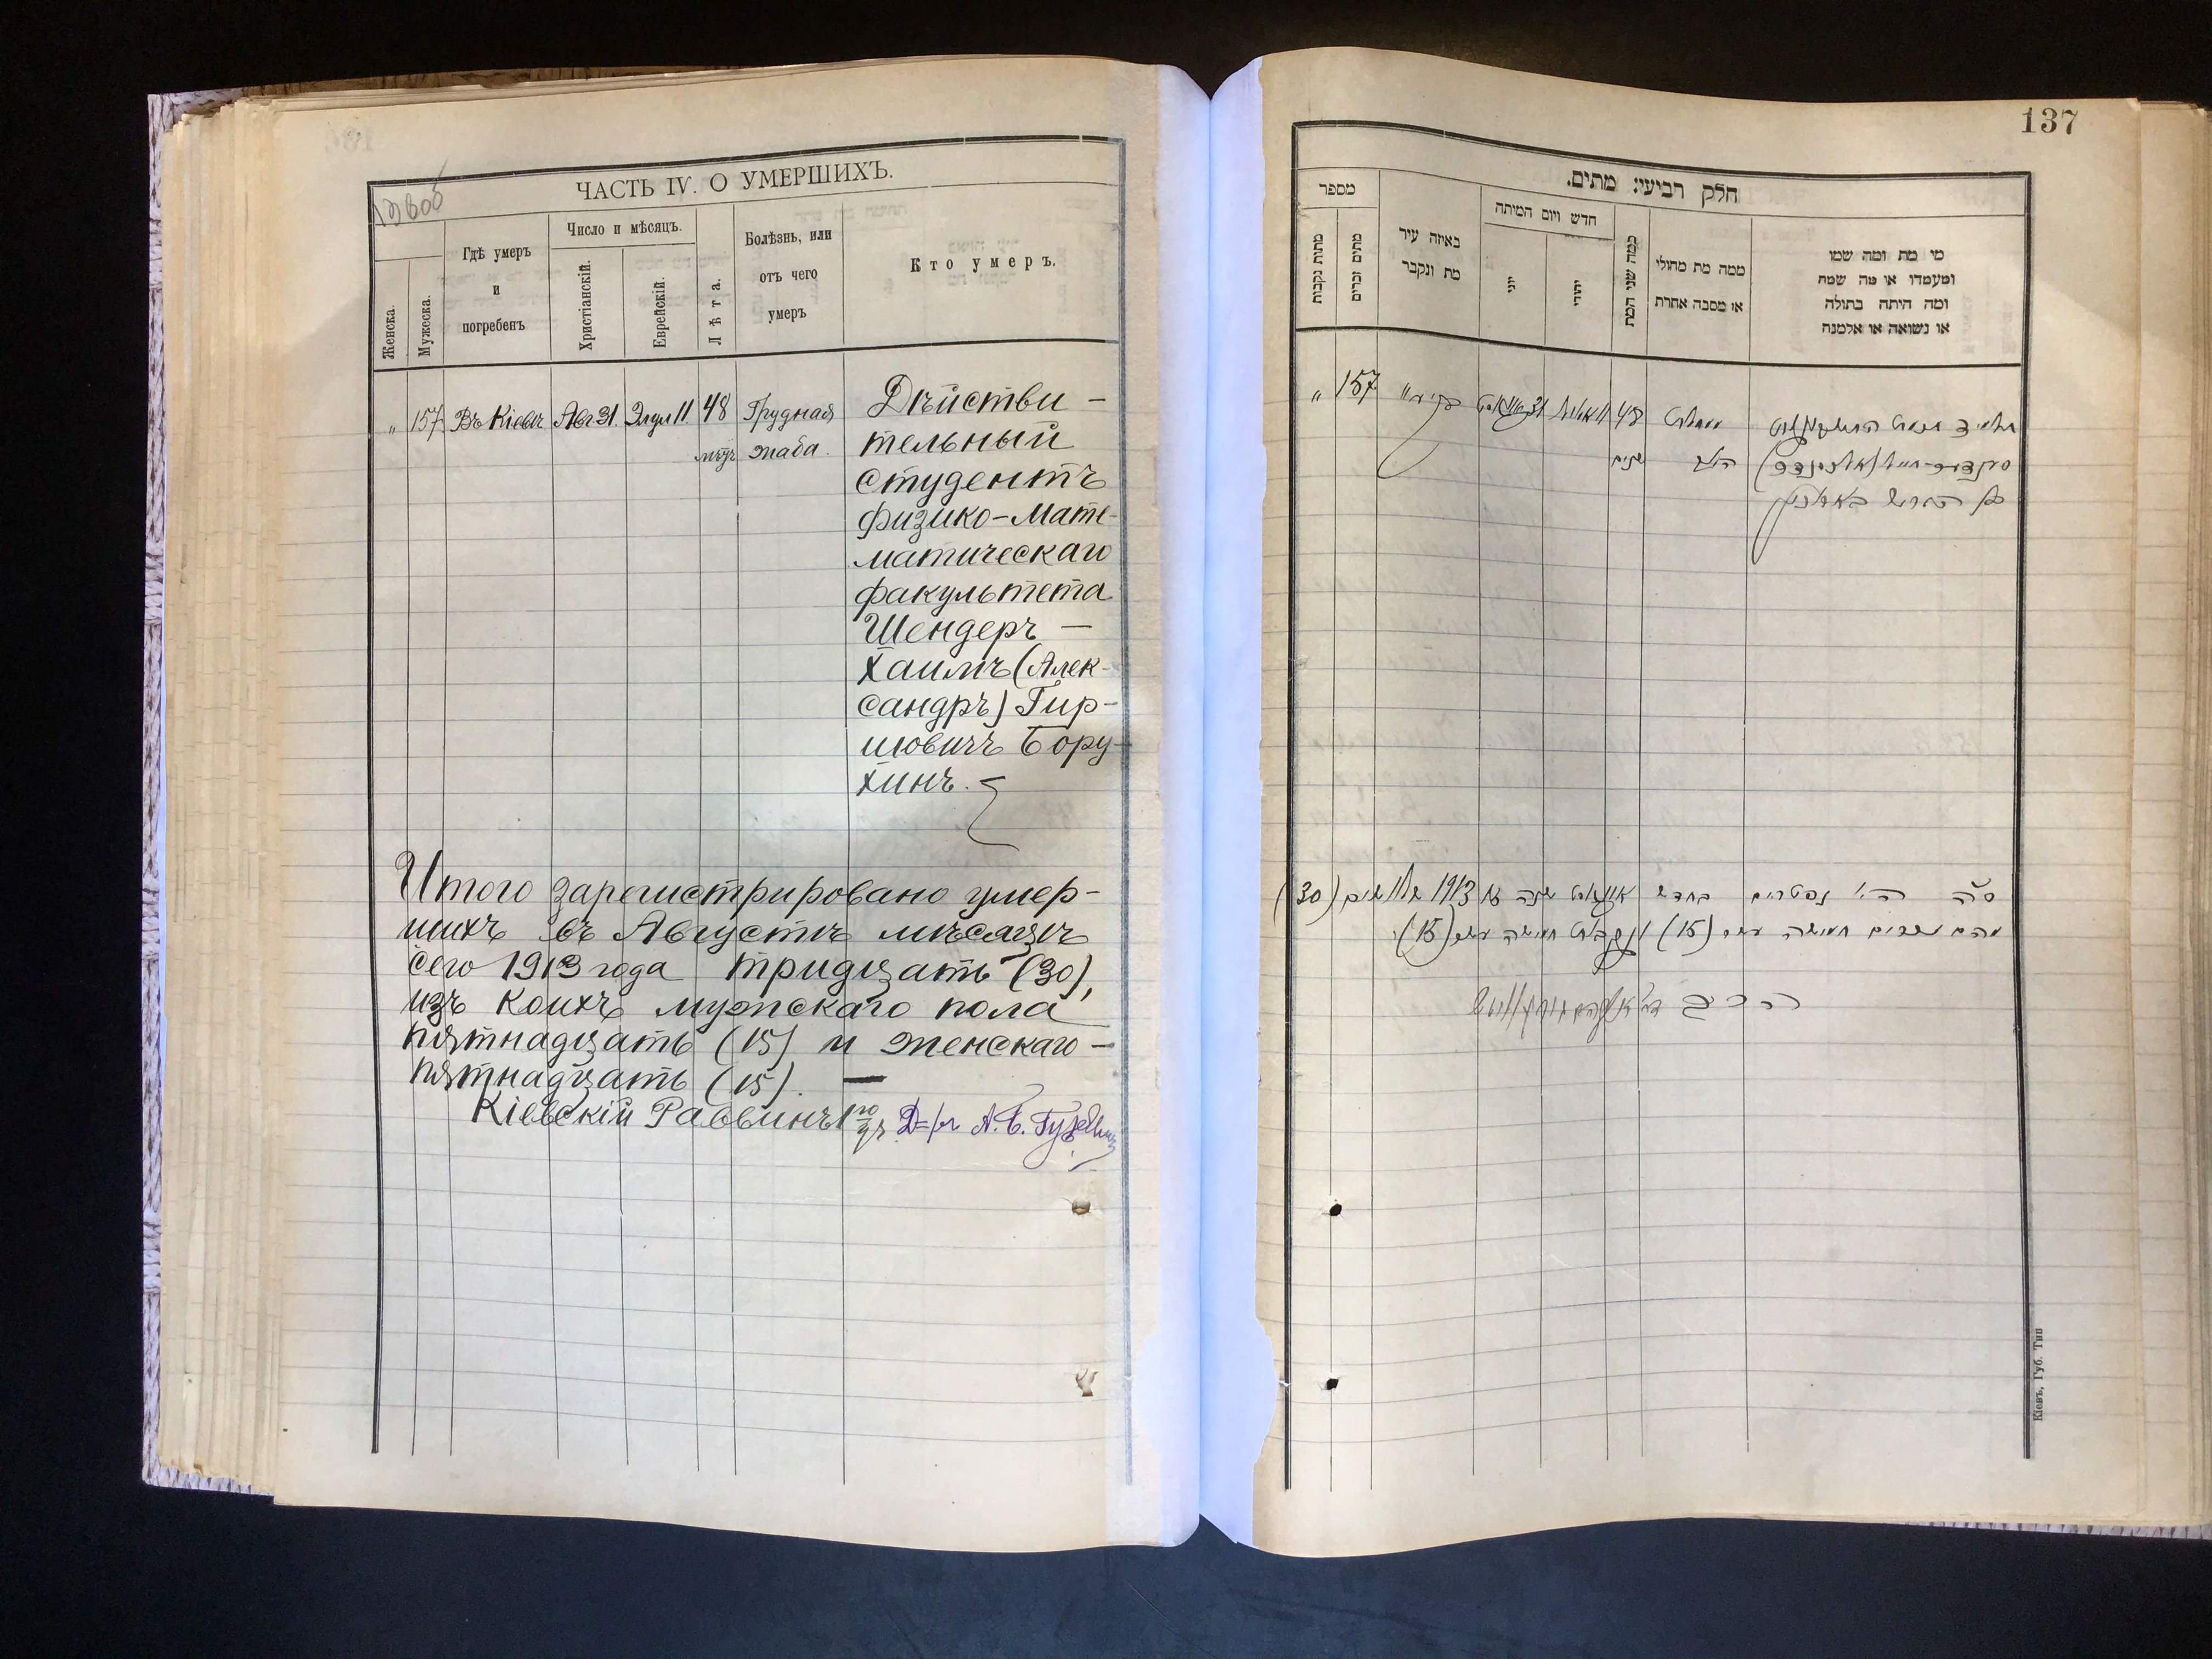 ЧАСТЬ IV. О УМЕРШИХЪ.
Женска.
Мужеска.
Гдѣ умеръ
и
погребенъ
Число и мѣсяцъ.
Христіанскій.
Еврейскій.
Лѣта.
Болѣзнь, или
отъ чего
умеръ
Кто умеръ.
„ 157. Въ Кіевѣ Авг 31. Элул 11. 48 Грудная
жаба.
Дѣйстви-
тельный
студентъ
физико-мате-
матическаго
факультета
Шендеръ-
Хаимъ (Алек-
сандръ) Гир-
шовичъ Бору-
хинъ.
Итого зарегистрировано умер-
шихъ въ Августѣ мѣсяцѣ
сего 1913 года тридцать (30),
изъ коихъ мужскаго пола
пятнадцать (15) и женскаго -
пятнадцать (15). —
Кіевскій Раввинъ А. Б. Гуревичъ
137
חלק רביעי: מתים.
מספר
מתות נקבות
מתים זכרים
באיזה עיר
מת ונקבר
חדש ויום המיתה
יוני
יהודי
כמה שני המת
ממה מת מחולי
או מסבה אחרת
מי מת ומה שמו
ומעמדו או מה שמה
ומה היתה בתולה
או נשואה או אלמנה
„ 157 31 11 48
שנים
ס״ה נפטרים בחדש אוגוסט שנה 1913 שלשים (30)
מהם זכרים חמישה עשר (15) ונקבות חמישה עשר (15).
הרב
Кіевъ, Губ. Тип